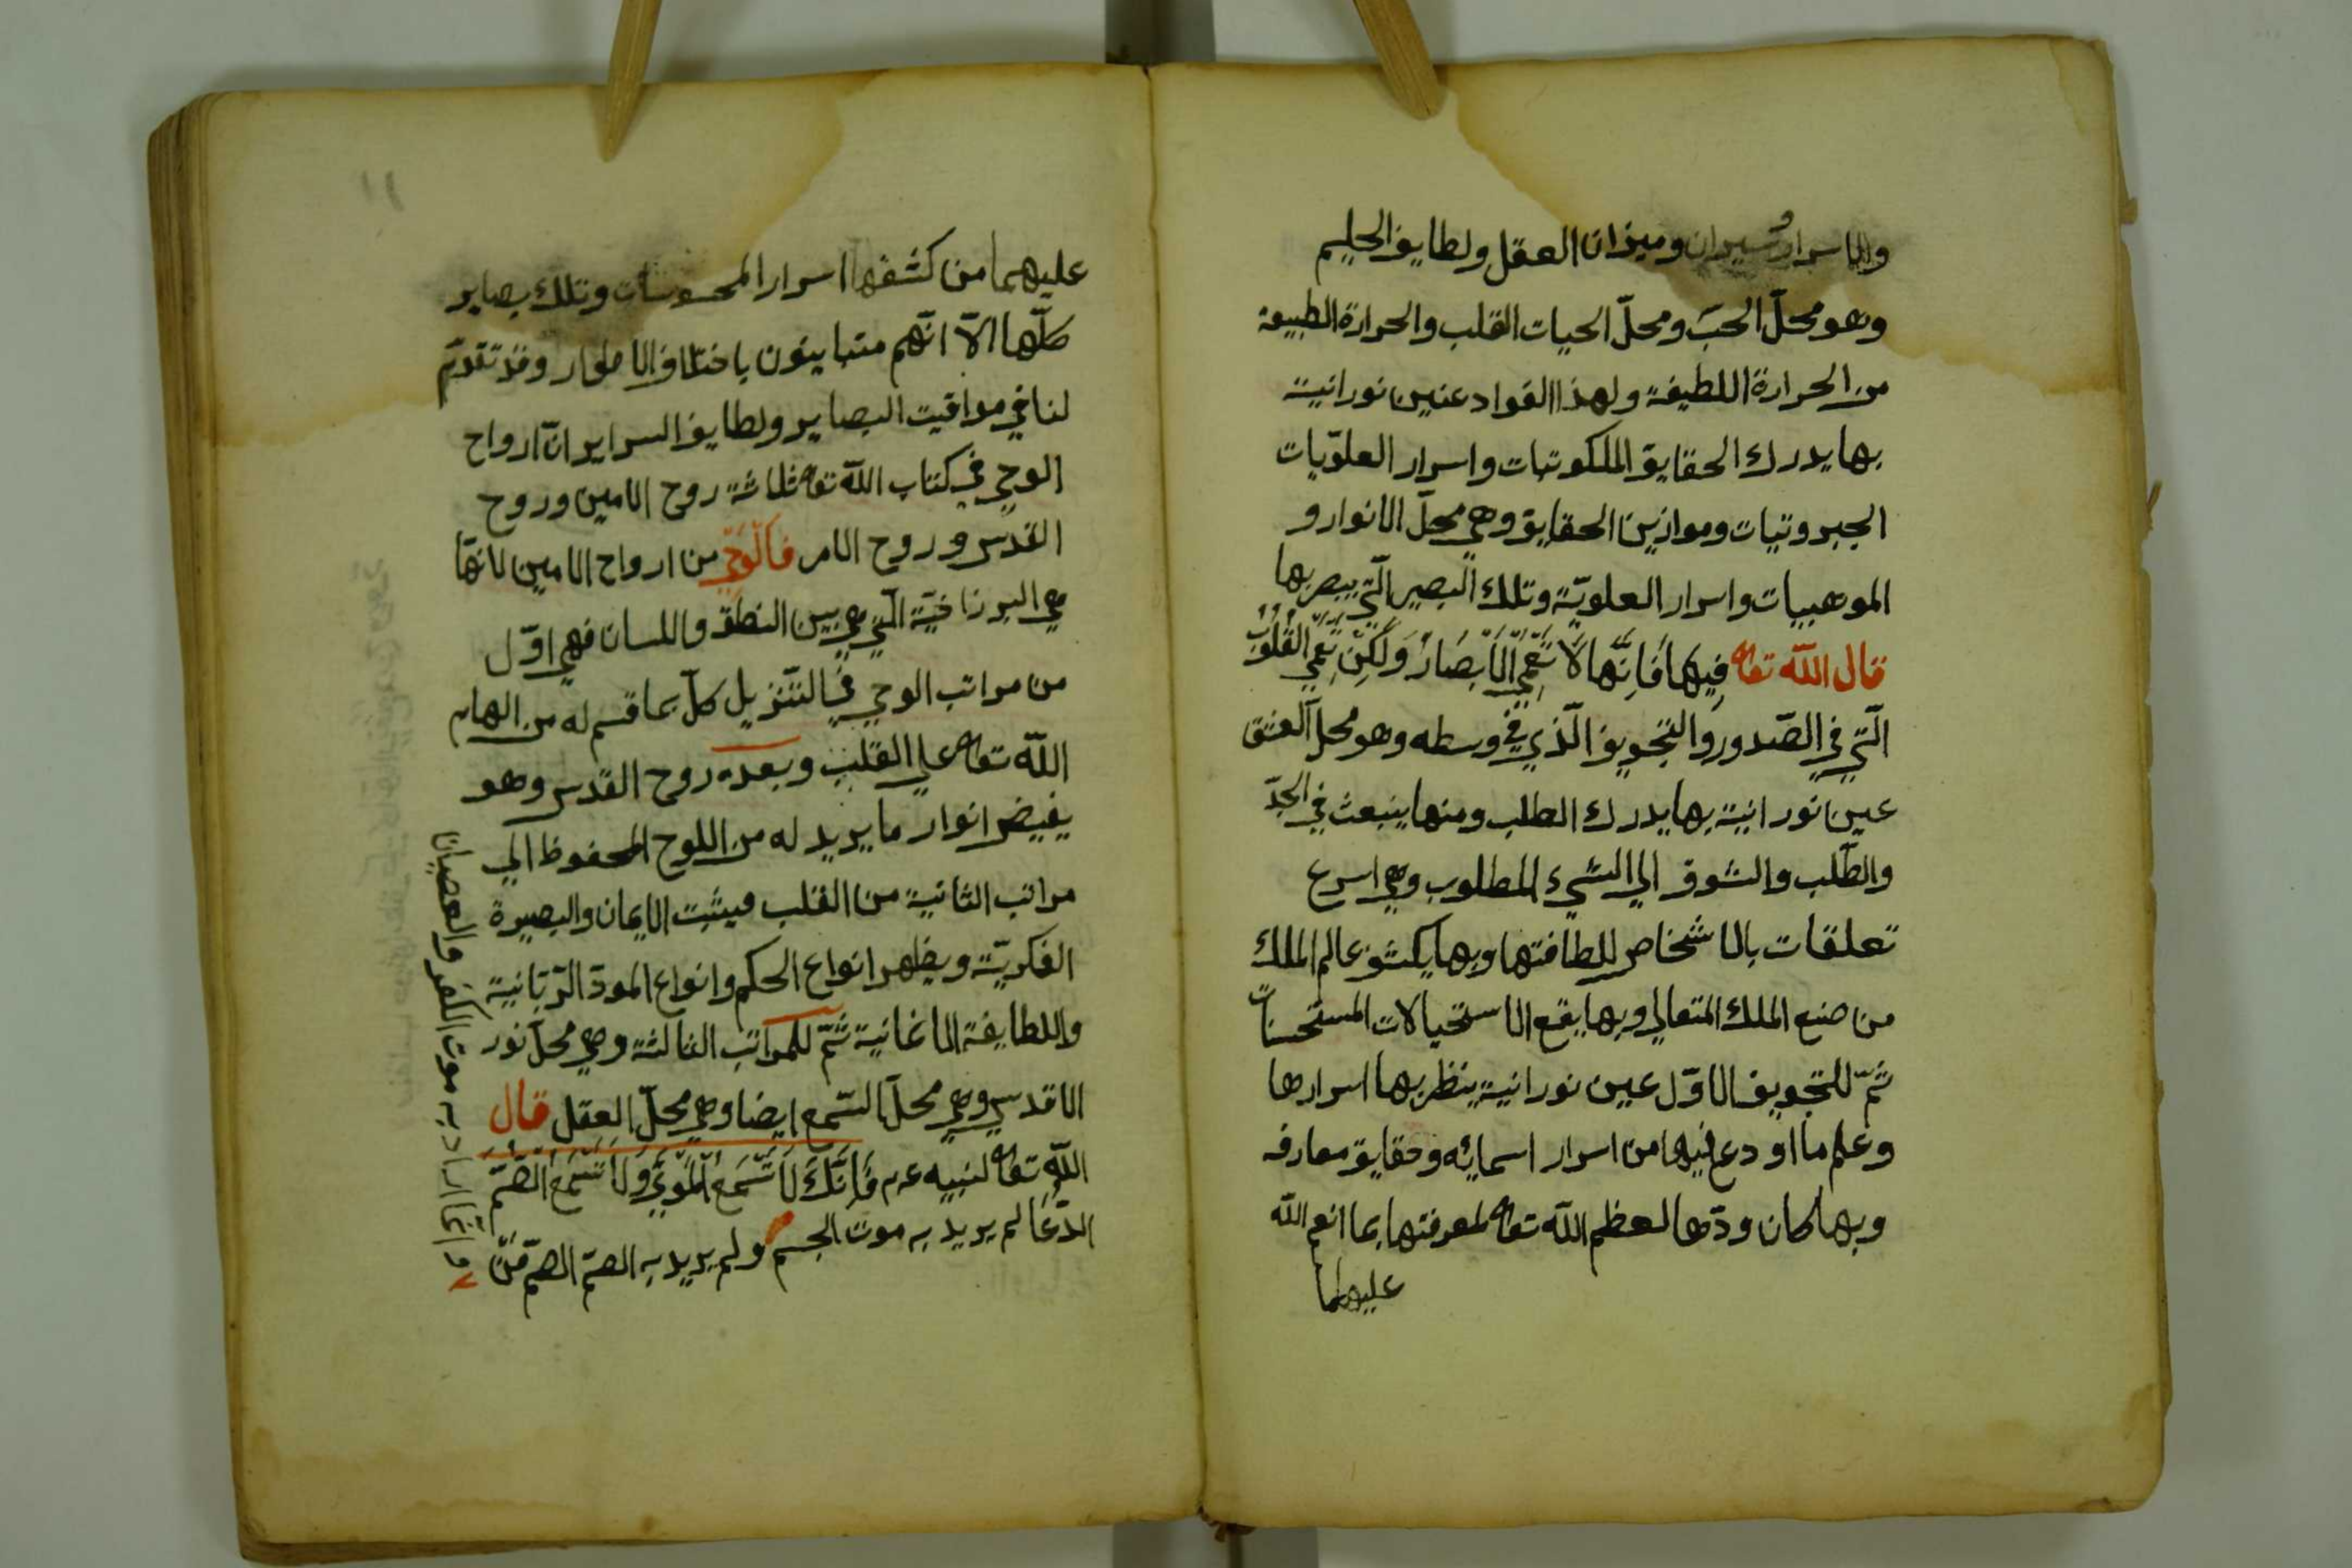 والاسرار وميزان العقل ولطايف الحليم
وهو محلّ الحبّ ومحلّ الحيات القلب والحرارة الطبيعة
من الحرارة اللطيفة ولهذا الفواد عنين نورانية
بها يدرك الحقايق الملكوتيات واسرار العلويّات
الجبروتيات وموازين الحقايق وهي محلّ الانوار و
الموهبيات واسرار العلويّة وتلك البصير الّتي يبصر بها
قال اللّه تعا فِيهَا فَاِنَّهَا لَا تَعْمَي الْاَبْصَارُ وَلَكِنْ تَعْمَي الْقُلُوبُ
الّتي في الصّدور والتجويف الّذي في وسطه وهو محلّ العشق
عين نورانية بها يدرك الطلب ومنها ينبعث في الجدّ
والطّلب والشوق الي الشيء المطلوب وهي اسرع
تعلقات بالاشخاص للطافتها وبها يكشف عالم الملك
من صنع الملك المتعالي وبها يقع الاستحيالات المستحسنات
ثمّ للتجويف الاوّل عين نورانية ينظر بها اسرارها
وعلم ما اودع فيها من اسرار اسمائه وحقايق معارفه
وبها كان ودّها لعظم اللّه تعا لمعرفتها بما انعم اللّه
عليهما
١١
عليهما من كشفها اسرار المحسوسات وتلك بصاير
كلّها الّا انّهم متباينون باختلاف الاطوار وقد تقدّم
لنا في مواقيت البصاير ولطايف السراير انّ ارواح
الوحي في كتاب اللّه تعا ثلاثة روح الامين وروح
القدس وروح الامر فالْوَحْي من ارواح الامين لانّها
هي البرزاخيّة الّتي هي بين النطق واللسان فهي اوّل
من مراتب الوحي في التنزيل كلّ بما قسم له من الهام
اللّه تعا علي القلب وبعده روح القدس وهو
يفيض انوار ما يريد له من اللوح المحفوظ الي
مراتب الثانية من القلب فيثبت الايمان والبصيرة
الفكريّة ويظهر انواع الحكم وانواع المودّ الرّبّانية
واللطايفة الاغانية ثمّ للمراتب الثالثة وهي محلّ نور
الاقدس وهي محلّ السّمع ايضا وهي محلّ العقل قال
اللّه تعا لنبيه عم فَاِنَّكَ لَا تُسْمِعُ الْمَوْتَي وَلَا تُسْمِعُ الصُّمَّ
الدُّعَا لم يريد به موت الجسم ولم يريد به الصمّ الصمّ
وانّما اراد به موت الكفر والعصيان